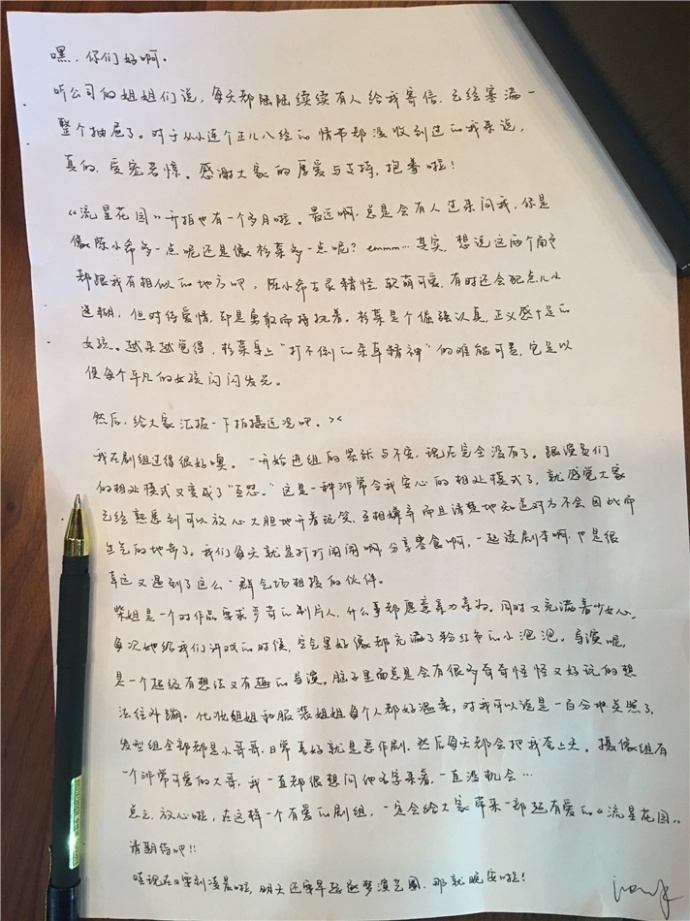 嘿，你们好啊。
听公司的姐姐们说，每天都陆陆续续有人给我寄信，已经塞满一
整个抽屉了。对于从小连个正儿八经的情书都没收到过的我来说，
真的，受宠若惊。感谢大家的厚爱与支持，抱着啦！
《流星花园》开拍也有一个多月啦。最近啊，总是会有人过来问我，你是
像陈小希多一点呢还是像杉菜多一点呢？emmm…其实，想说这两个角色
都跟我有相似的地方吧，陈小希古灵精怪，软萌可爱，有时还会犯点儿小
迷糊，但对待爱情，却是勇敢而持执着。杉菜是个倔强认真，正义感十足的
女孩。越来越觉得，杉菜身上“打不倒的杂草精神”的难能可贵，它足以
使每个平凡的女孩闪闪发光。
然后，给大家汇报一下拍摄近况吧。><
我在剧组过得很好噢。一开始进组的紧张与不安，现在完全没有了。跟演员们
的相处模式又变成了“互怼。”这是一种非常令我安心的相处模式了，就感觉大家
已经熟悉到可以放心大胆地开着玩笑，互相嫌弃而且清楚地知道对方不会因此而
生气的地步了。我们每天就是打打闹闹啊，分享零食啊，一起读剧本啊，也是很
幸运又遇到了这么一群气场相投的伙伴。
柴姐是一个对作品要求多奇的制片人，什么事都愿意亲力亲为。同时又充满着少女心，
每次她给我们讲戏的时候，空气里好像都充满了粉红色的小泡泡。导演呢，
是一个超级有想法又有趣的导演。脑子里面总是会有很多奇奇怪怪又好玩的想
法往外蹦。化妆姐姐和服装姐姐每个人都好温柔，对我可以说是一百分地关照了，
发型组全部都是小哥哥，日常喜好就是恶作剧，然后每天都会把我夸上天。摄像组有
一个非常可爱的大哥，我一直都很想问他名字来着，一直没机会…
总之，放心啦，在这样一个有爱的剧组，一定会给大家带来一部超有爱的《流星花园》。
请期待吧！！
哇现在口零刻凌晨啦，明天还要早起逐梦演艺圈，那就晚安啦！